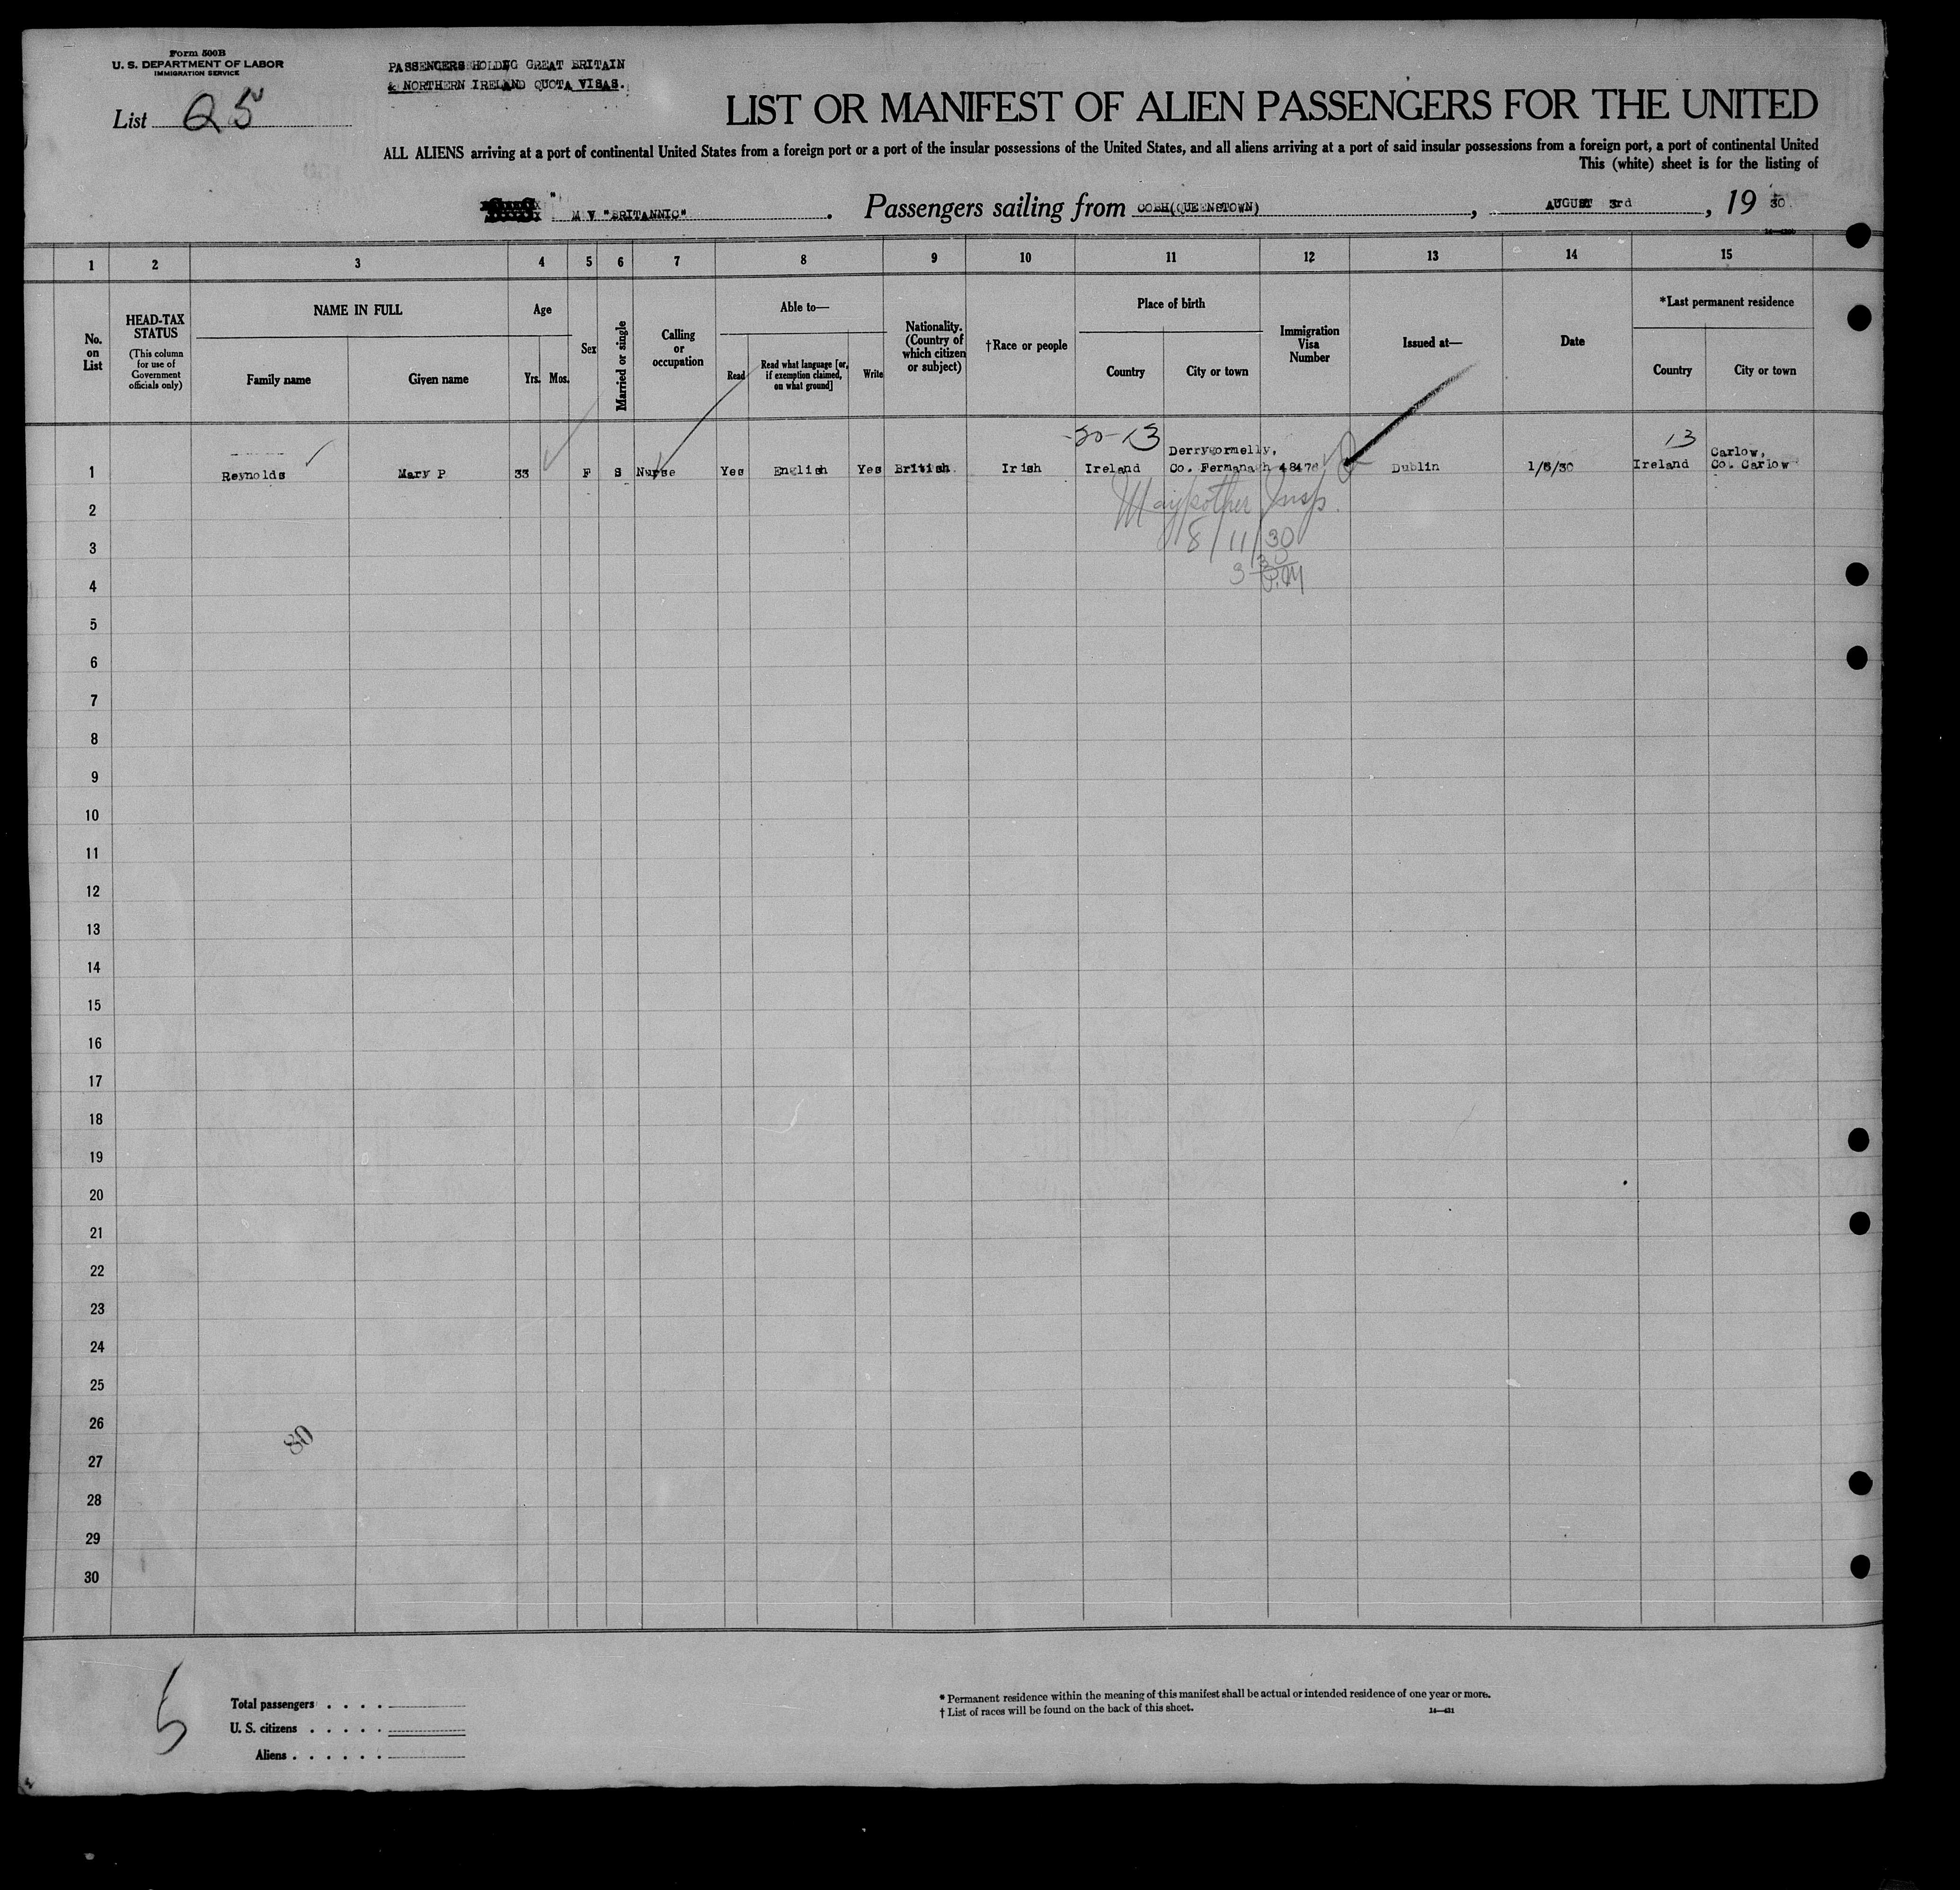 Form 500B
U. S. DEPARTMENT OF LABOR
IMMIGRATION SERVICE
List 25
PASSENGERS HOLDNG GREAT BRITAIN
& NORTHERN IRELAND QUOTA VISAS.
LIST OR MANIFEST OF ALIEN PASSENGERS FOR THE UNITED
ALL ALIENS arriving at a port of continental United States from a foreign port or a port of the insular possessions of the United States, and all aliens arriving at a port of said insular possessions from a foreign port, a port of continental United
This (white) sheet is for the listing of
M V "BRITANNIC" . Passengers sailing from COBH(QUEENSTOWN) , AUGUST 3rd , 19 30.
1 2 3 4 5 6 7 8 9 10 11 12 13 14 15
No. on List
HEAD-TAX STATUS
(This column for use of Government officials only)
NAME IN FULL
Family name
Given name
Age
Yrs. Mos.
Sex
Married or single
Calling or occupation
Able to—
Read
Read what language [or, if exemption claimed, on what ground]
Write
Nationality. (Country of which citizen or subject)
†Race or people
Place of birth
Country
City or town
Immigration Visa Number
Issued at—
Date
*Last permanent residence
Country
City or town
1 Reynolds Mary P 33 F S Nurse Yes English Yes British Irish Ireland Derrygormelly, Co. Fermanagh Dublin Ireland Carlow, Co. Carlow
13
Insp.
8/11/30
2
3
4
5
6
7
8
9
10
11
12
13
14
15
16
17
18
19
20
21
22
23
24
25
26
27
28
29
30
80
5
Total passengers . . . .
U. S. citizens . . . . .
Aliens . . . . . .
* Permanent residence within the meaning of this manifest shall be actual or intended residence of one year or more.
† List of races will be found on the back of this sheet.
14—421